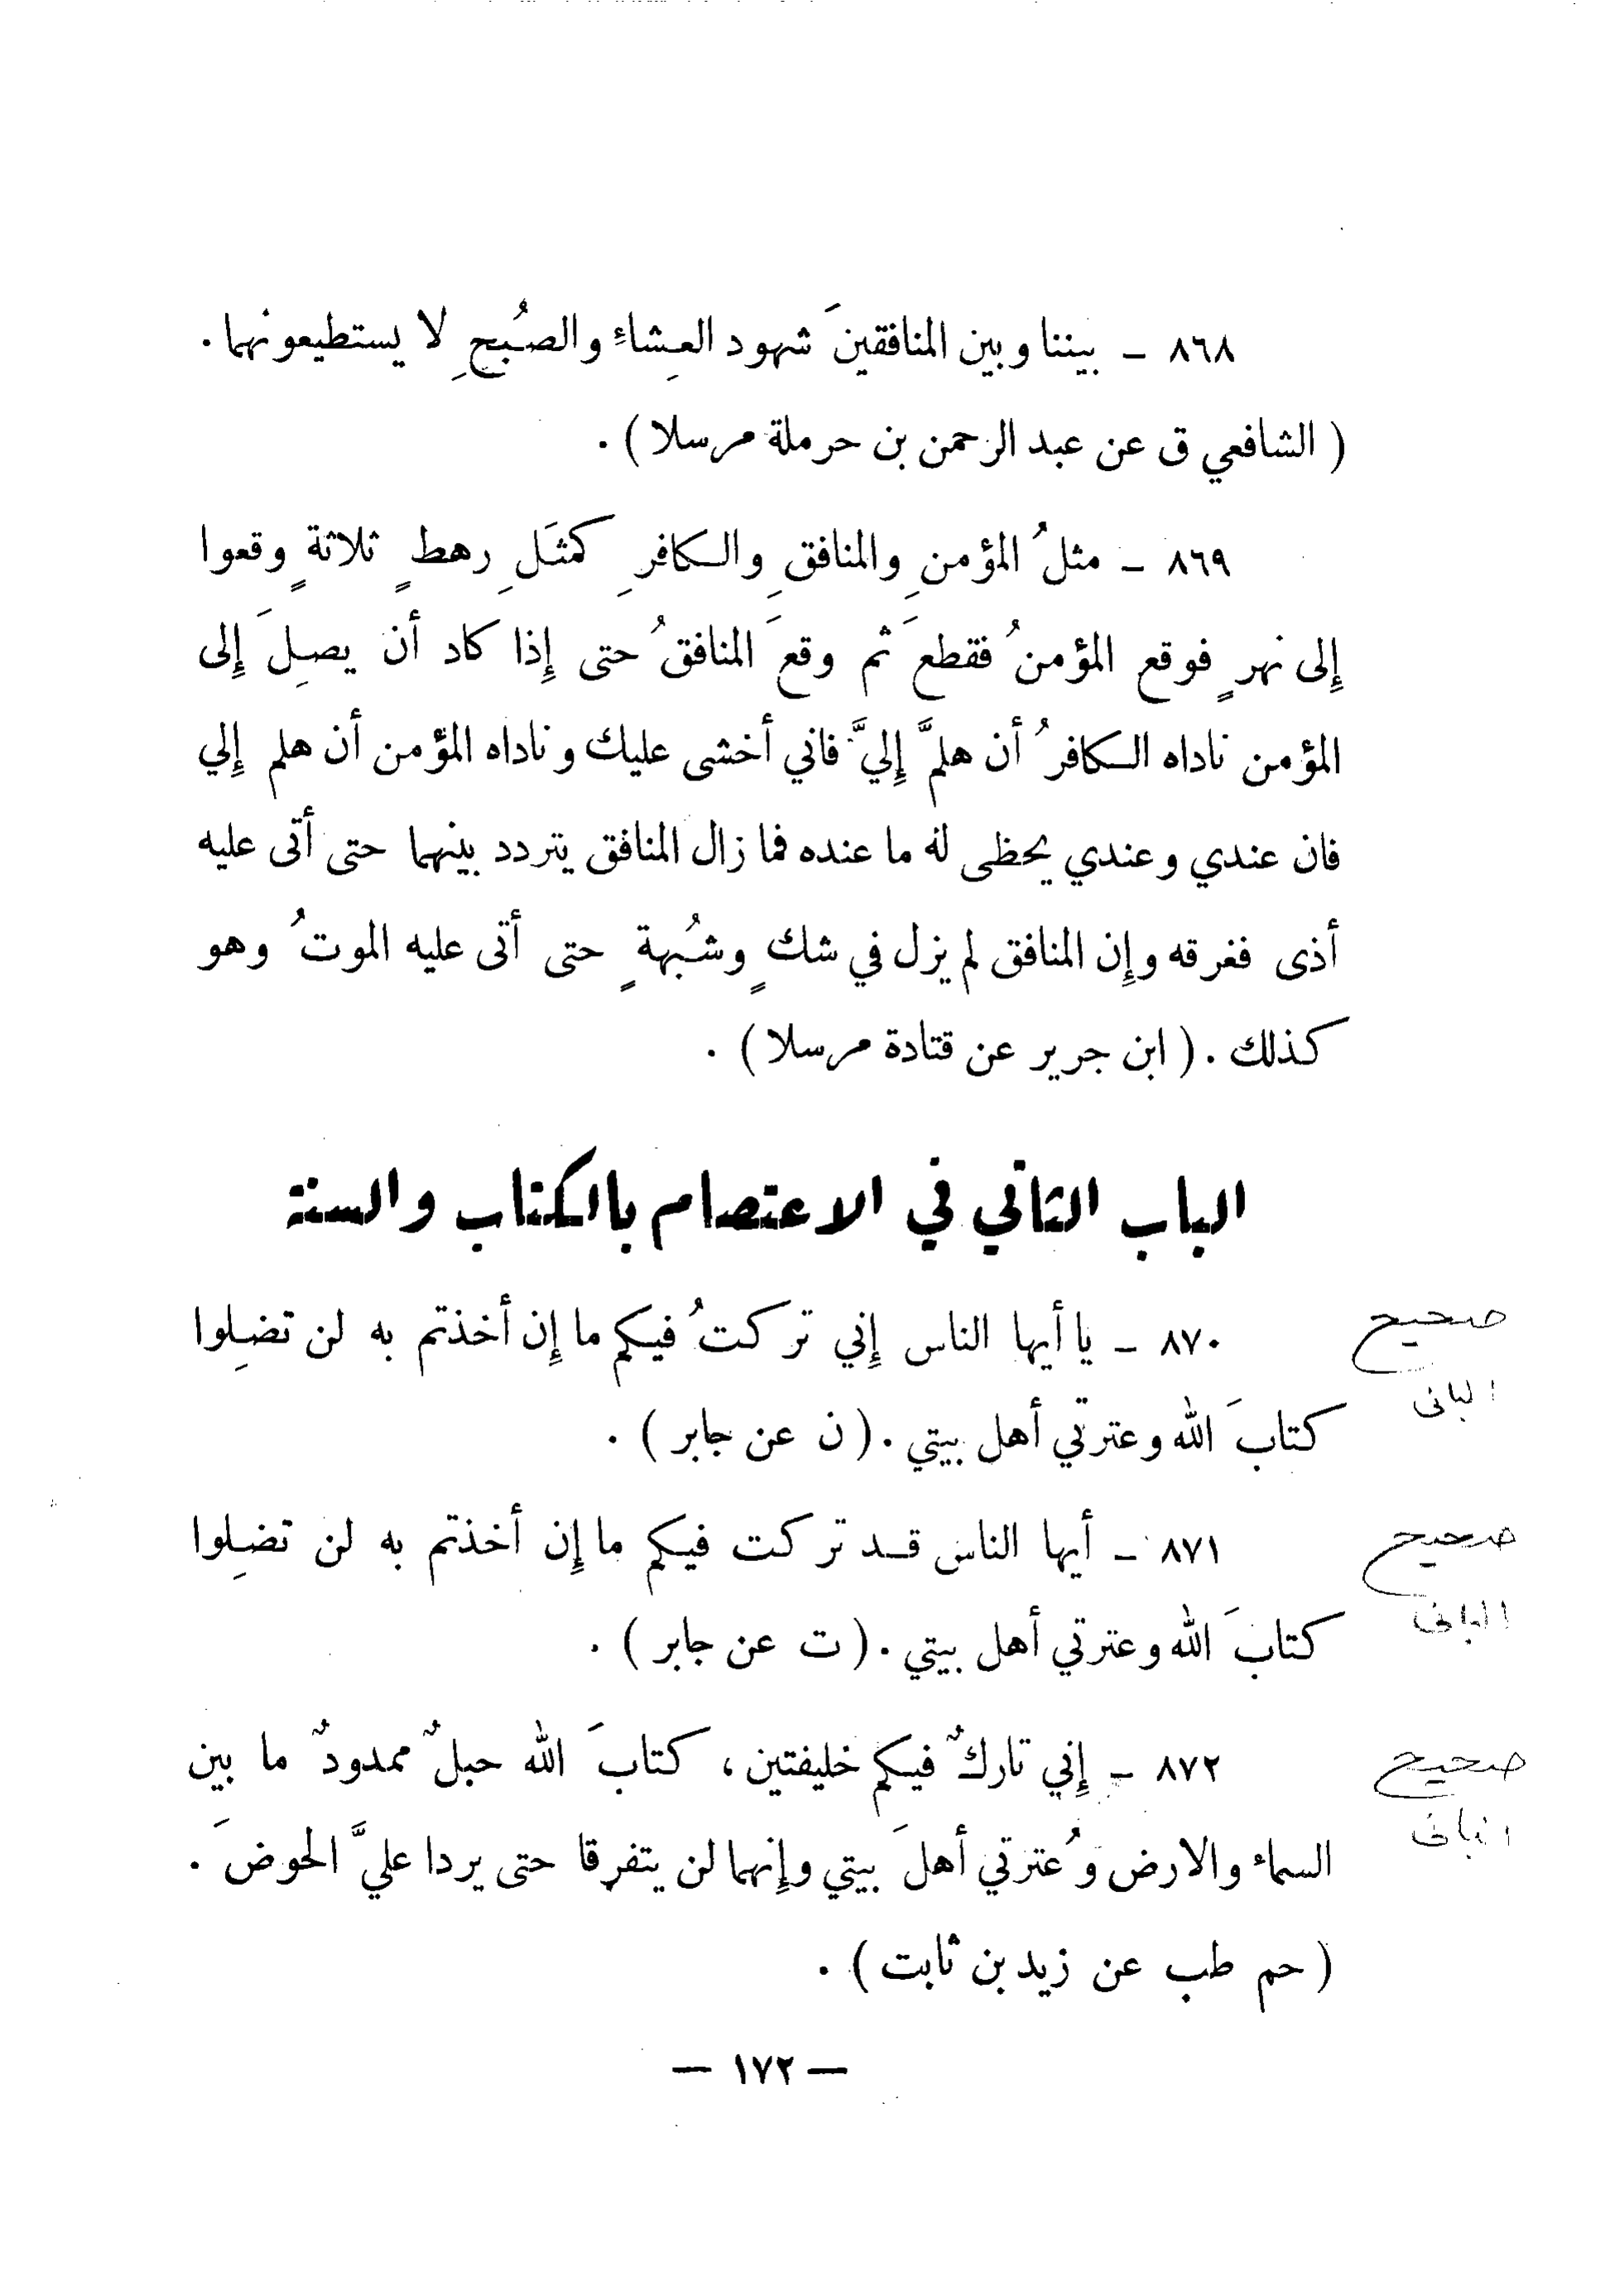 ٨٦٨ ـ بيننا وبين المنافقينَ شهود العِشاءِ والصُبحِ لا يستطيعونهما .
( الشافعي ق عن عبد الرحمن بن حرملة مرسلا ) .
٨٦٩ ـ مثلُ المؤمنِ والمنافقِ والكافرِ كمثَلِ رهطٍ ثلاثةٍ وقعوا
إِلى نهرٍ فوقع المؤمنُ فقطعَ ثم وقعَ المنافقُ حتى إِذا كاد أن يصلِ إِلى
المؤمن ناداه الكافرُ أن هلمَّ إِليَّ فاني أخشى عليك وناداه المؤمن أن هلم إِلي
فان عندي وعندي يحظى له ما عنده فما زال المنافق يتردد بينهما حتى أتى عليه
أذى فغرقه وإِن المنافق لم يزل في شكٍ وشُبهةٍ حتى أتى عليه الموتُ وهو
كذلك . ( ابن جرير عن قتادة مرسلا ) .
الباب الثاني في الاعتصام بالكتاب والسنة
٨٧٠ ـ يا أيها الناس إِني تركتُ فيكم ما إِن أخذتم به لن تضلِوا
صحيح
البانى
كتابَ الله وعترتي أهل بيتي . ( ن عن جابر ) .
٨٧١ ـ أيها الناس قد تركت فيكم ما إِن أخذتم به لن تضلِوا
صحيح
البانى
كتابَ الله وعترتي أهل بيتي . ( ت عن جابر ) .
٨٧٢ ـ إِني تاركٌ فيكم خليفتين ، كتابَ الله حبلٌ ممدودٌ ما بين
صحيح
البانى
السماء والارض وعُترتي أهلَ بيتي وإِنهما لن يتفرقا حتى يردا عليَّ الحوضَ .
( حم طب عن زيد بن ثابت ) .
— ١٧٢ —